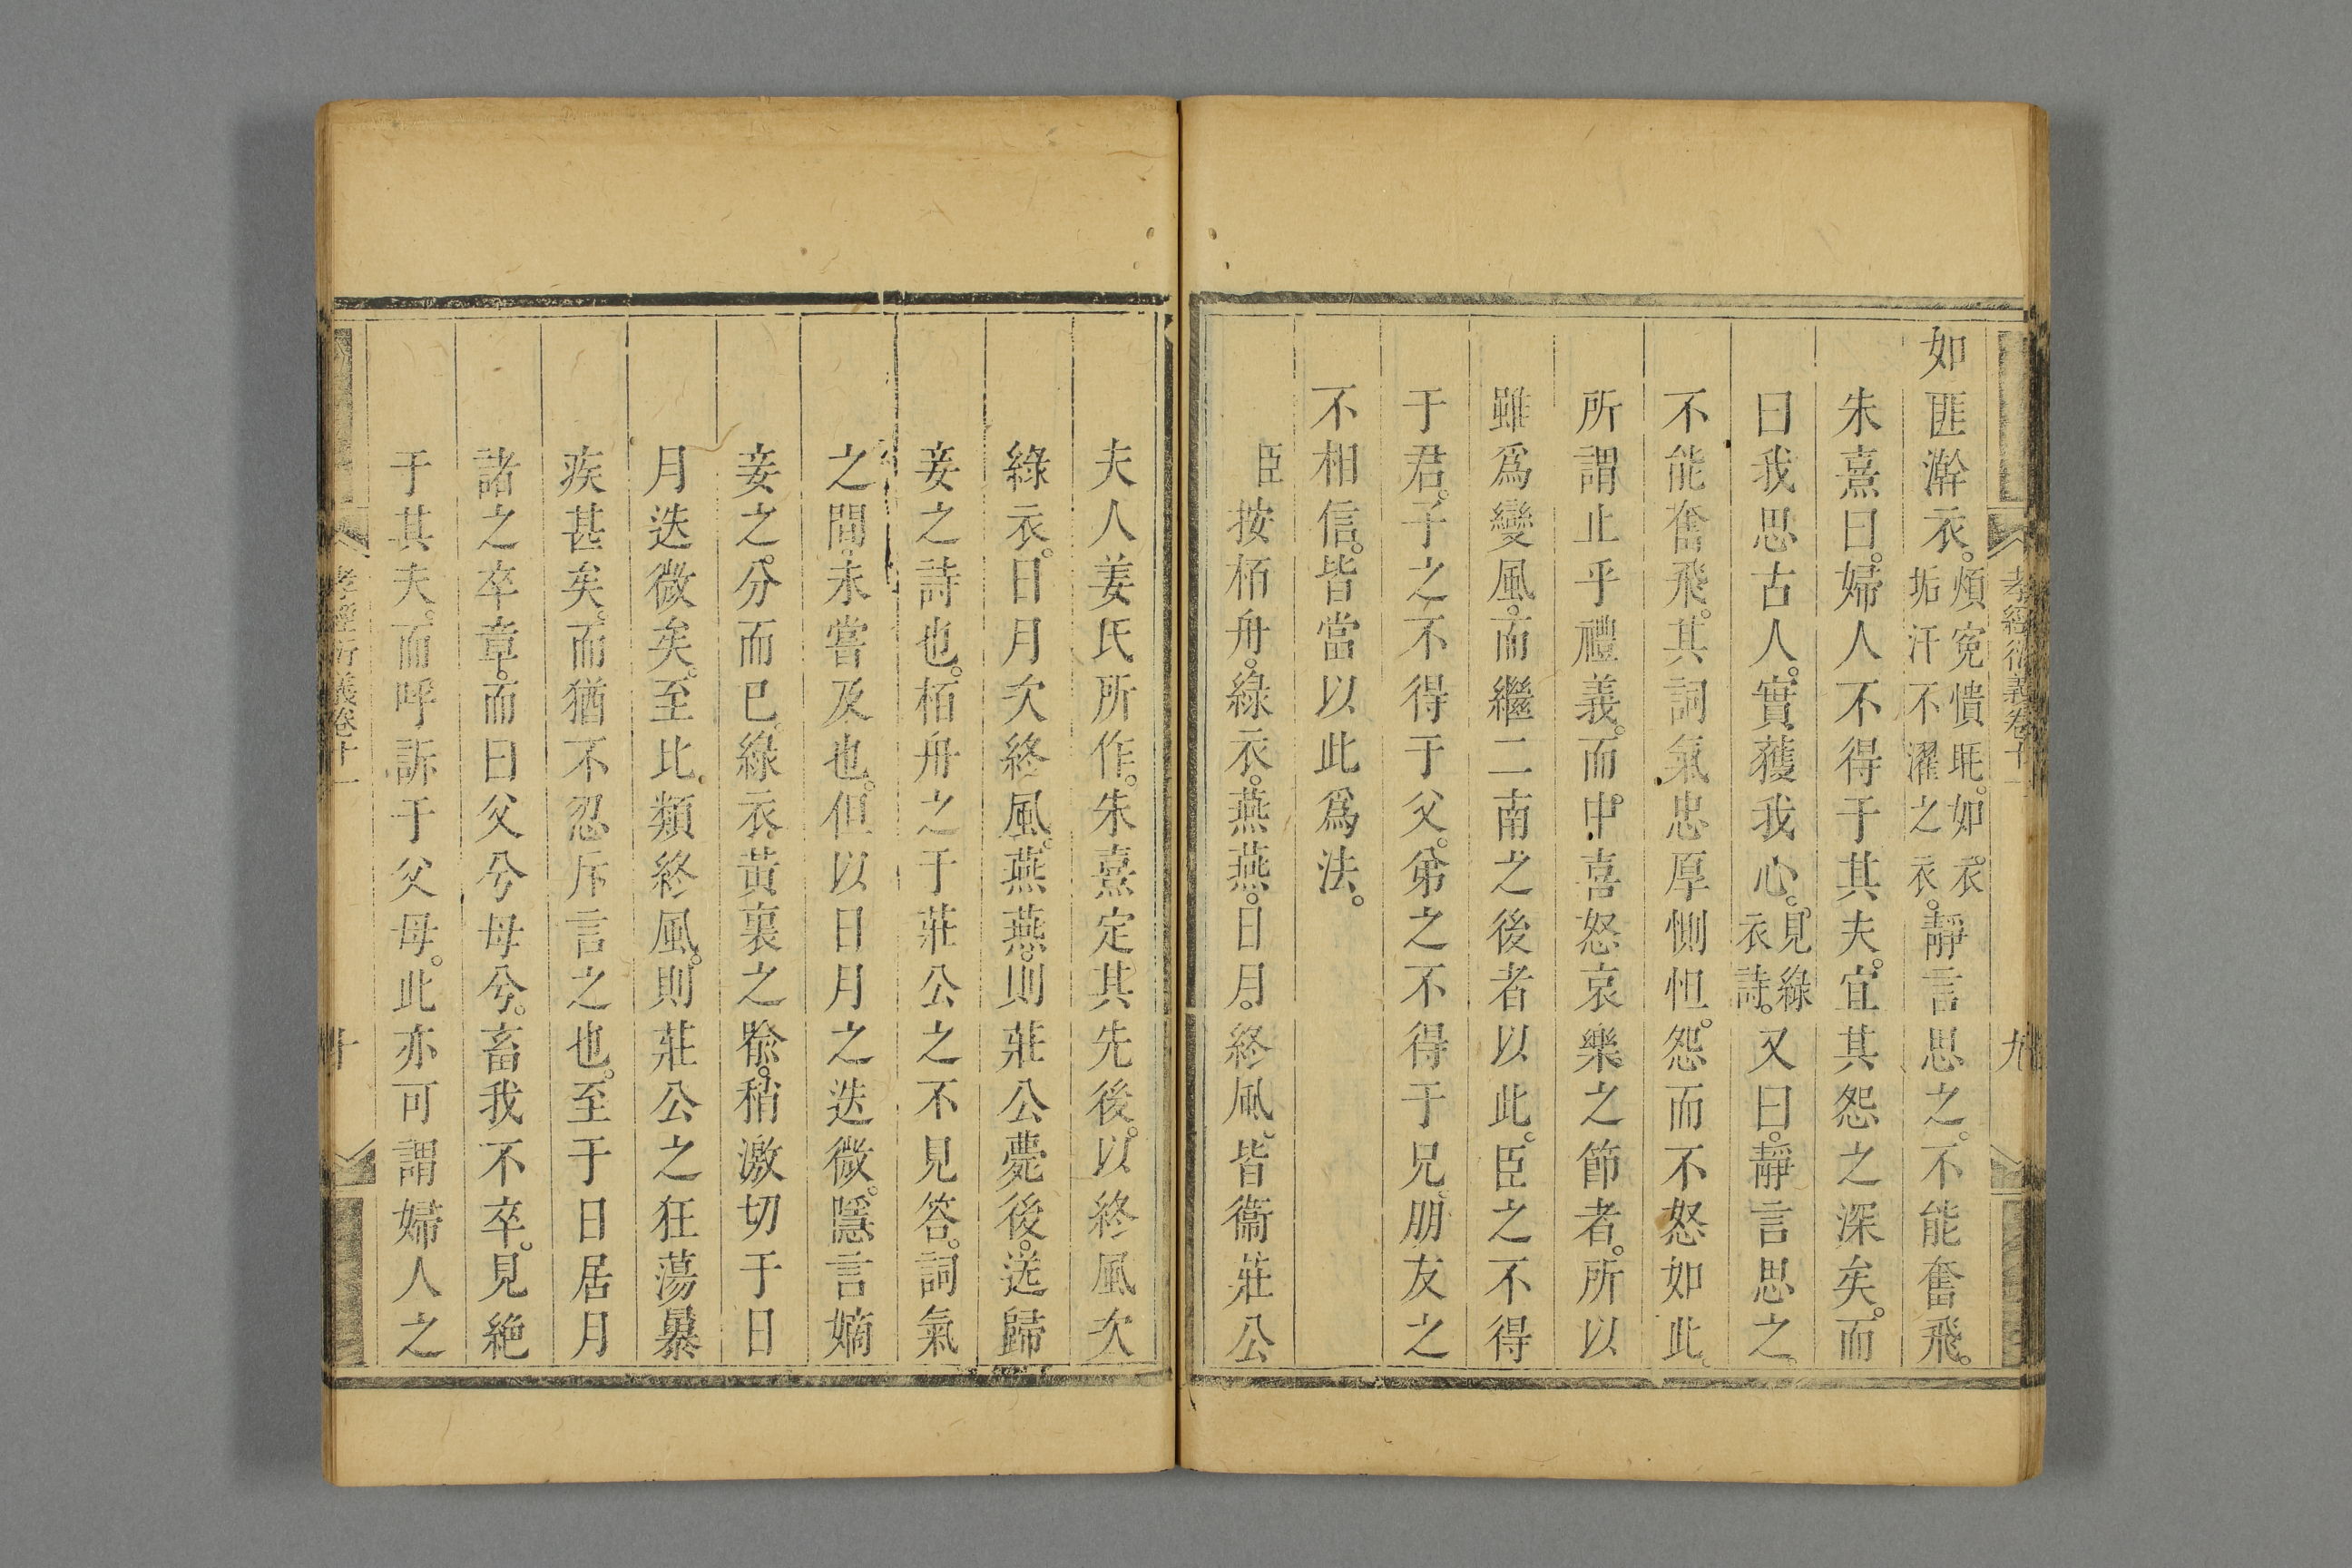 孝經衍義卷十一
九
如匪澣衣。煩寃憒眊。如衣垢汗不濯之衣。靜言思之。不能奮飛。
朱熹曰。婦人不得于其夫。宜其怨之深矣。而
曰我思古人。實獲我心。見綠衣詩。又曰。靜言思之。
不能奮飛。其詞氣忠厚惻怛。怨而不怒如此。
所謂止乎禮義。而中喜怒哀樂之節者。所以
雖爲變風。而繼二南之後者以此。臣之不得
于君。子之不得于父。弟之不得于兄。朋友之
不相信。皆當以此爲法。
臣按栢舟。綠衣。燕燕。日月。終風。皆衞莊公
夫人姜氏所作。朱熹定其先後。以終風次
綠衣。日月次終風。燕燕。則莊公薨後。送歸
妾之詩也。栢舟之于莊公之不見答。詞氣
之間。未嘗及也。但以日月之迭微。隱言嫡
妾之分而已。綠衣黃裏之喻。稍激切于日
月迭微矣。至比類終風。則莊公之狂蕩暴
疾甚矣。而猶不忍斥言之也。至于日居月
諸之卒章。而曰父兮母兮。畜我不卒。見絕
于其夫。而呼訴于父母。此亦可謂婦人之
孝經衍義卷十一
十